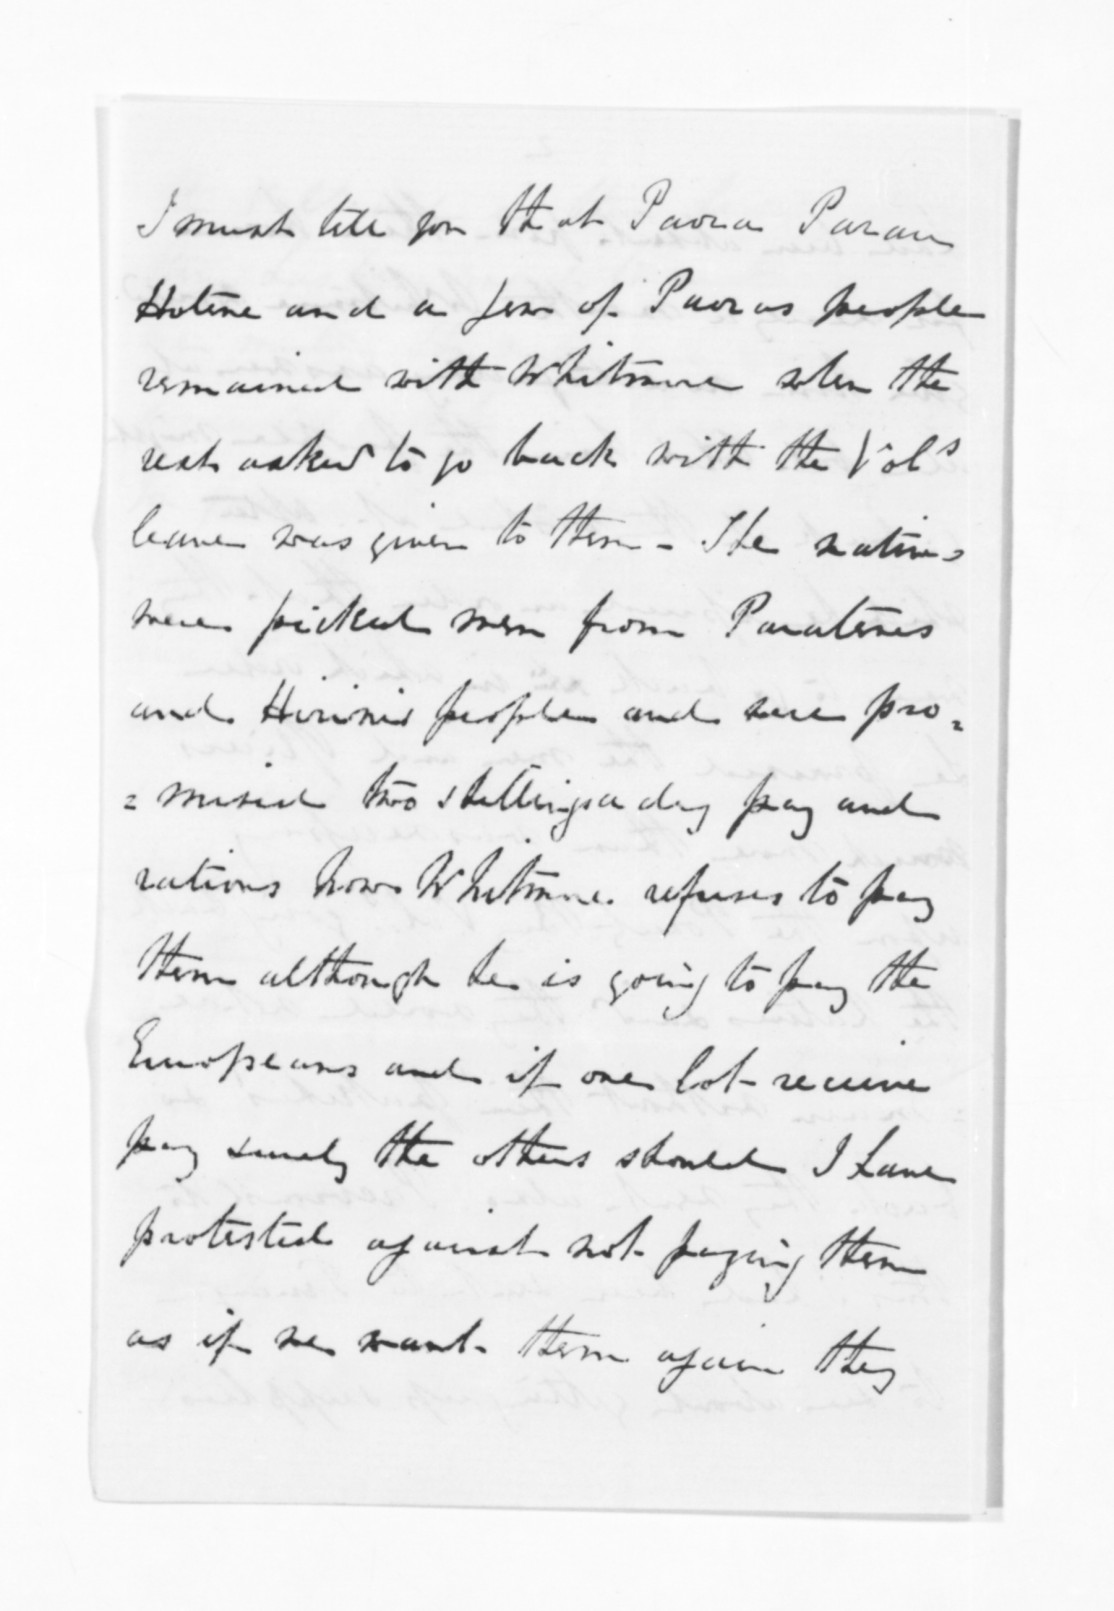 I must tell you that Paora Parau
Hotene and a few of Paoras people
remained with Whitmore when the
rest asked to go back with the Vols
leave was given to them - The natives
were picked men from Paratenes
and Hirinis people and were pro=
=mised two shillings a day pay and
rations now Whitmore refuses to pay
them although he is going to pay the
Europeans and if one lot receive
pay surely the others should I have
protested against not paying them
as if we want them again they